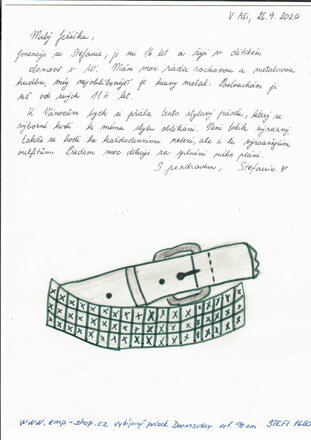 V Aši, 26.9.2020
Milý Ježíšku,
jmenuji se Stefanie, je mi 16 let a žiji v dětském
domově v Aši. Mám moc ráda rockovou a metalovou
hudbou, můj nejoblíbenější je heavy metal. Poslouchám je
už od svých 11ti let.
K Vánocům bych si přála tento stylový pásek, který se
výborně hodí k mému stylu oblékání. Není tolik výrazný
takže se hodí ke každodennímu nošení, ale i k výraznějším
outfitům. Předem moc děkuji za splnění mého přání.
S pozdravem, Stefanie
www.emp-shop.cz vybíjený pásek Doomsday vel. 90cm STEFI 16let